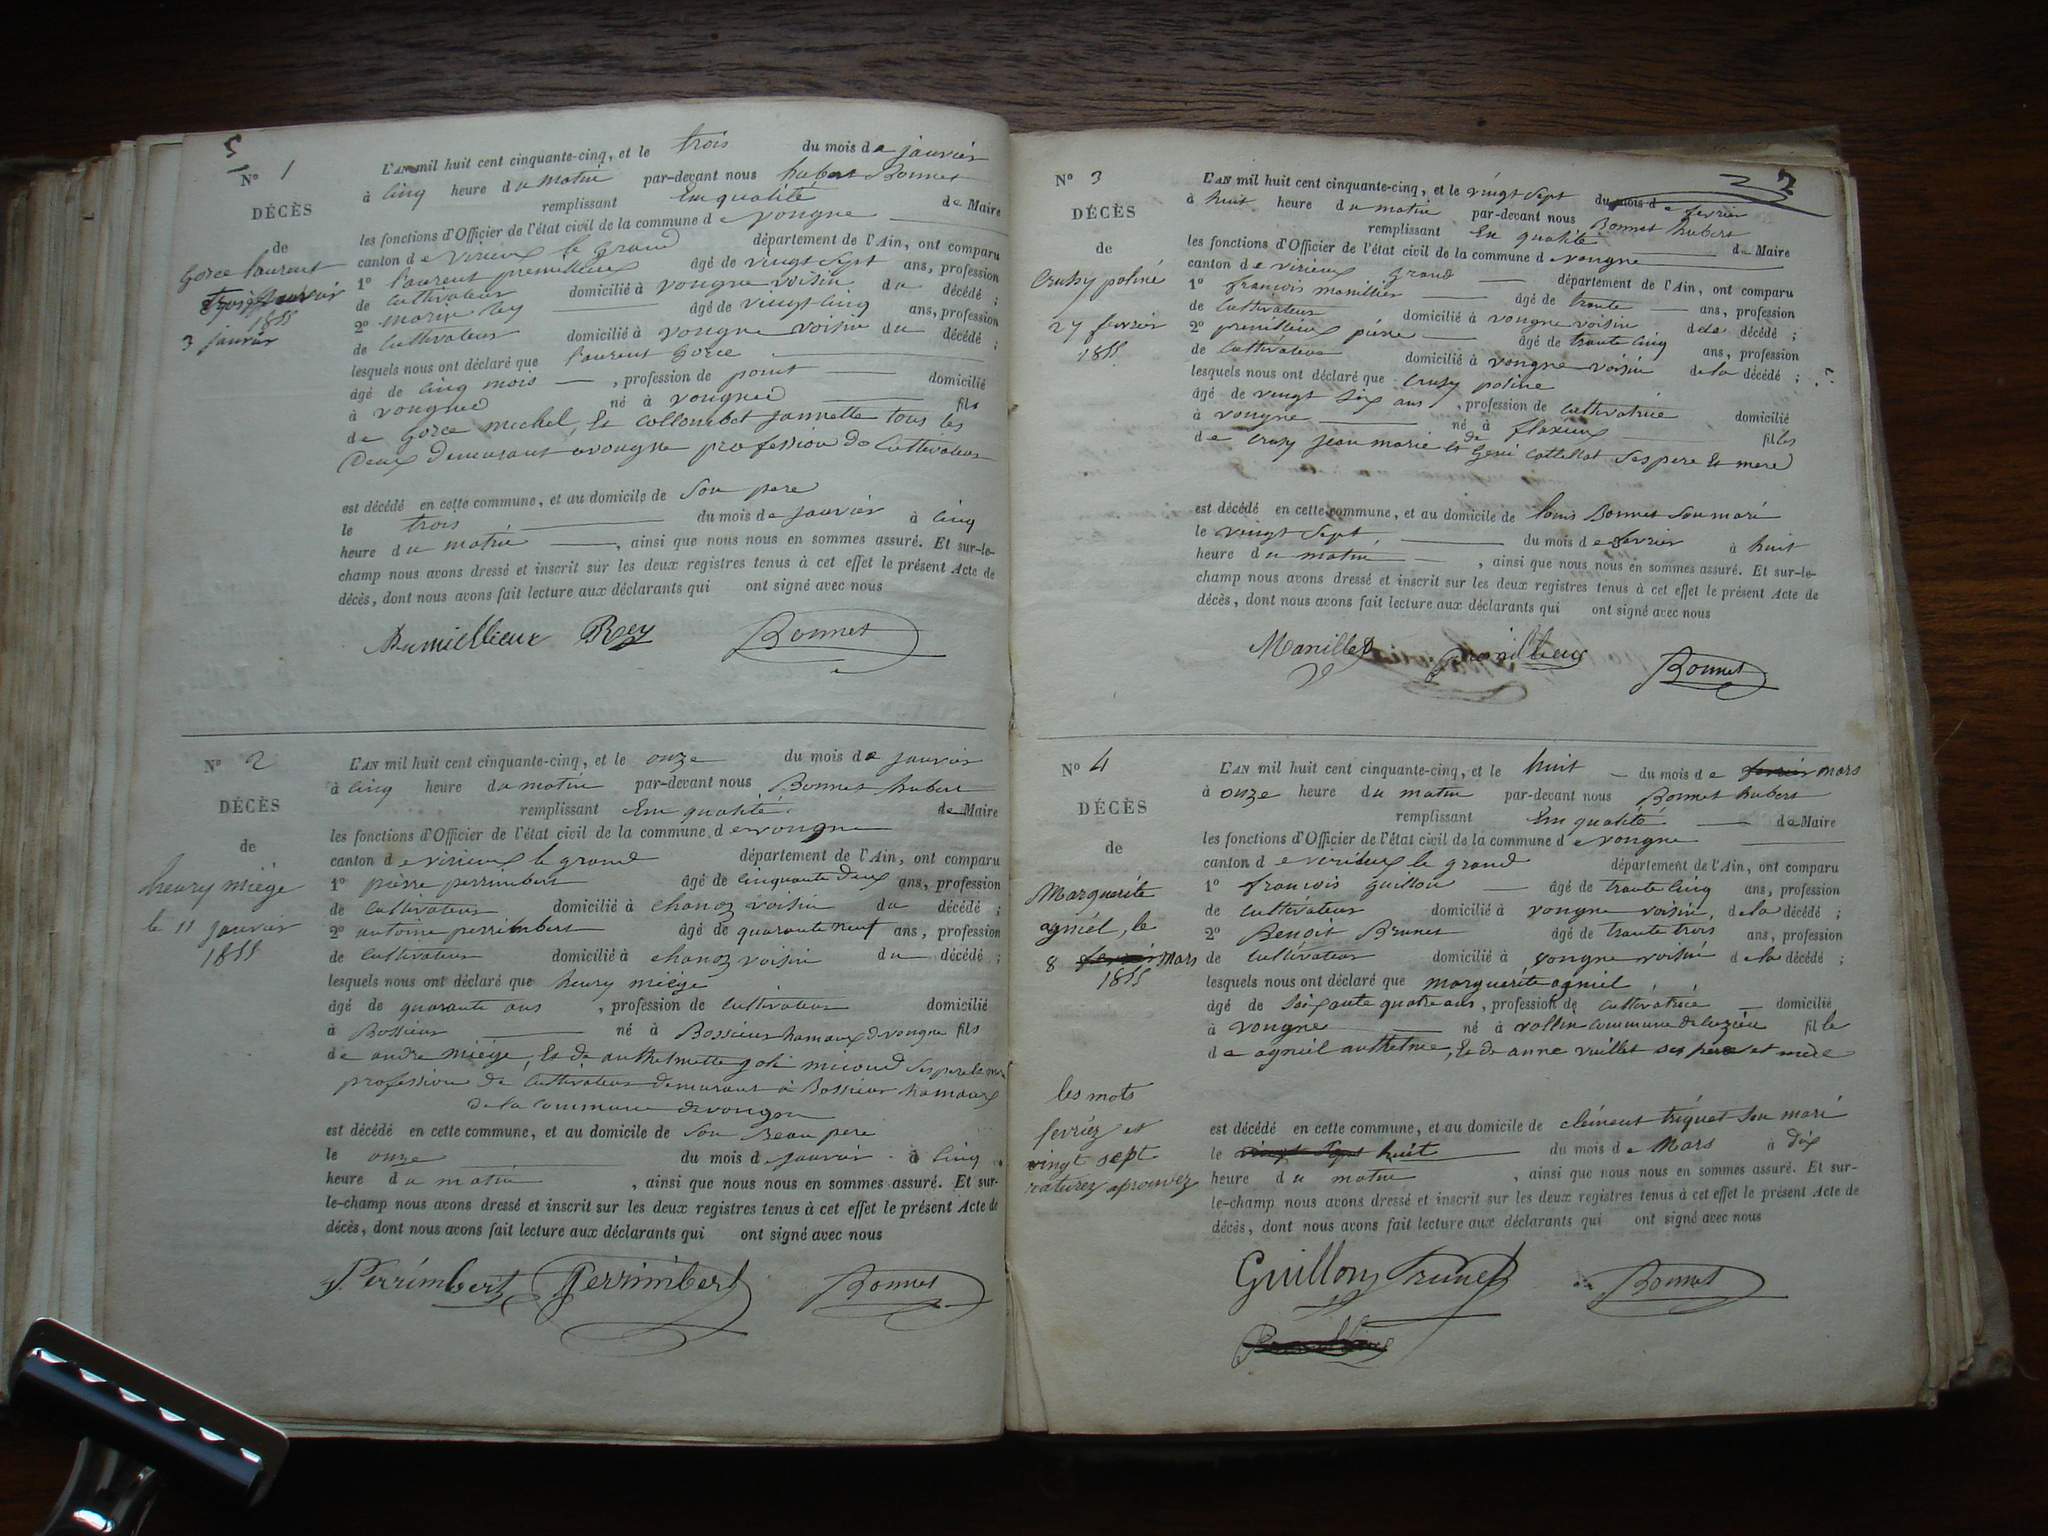 5
N° 1
DÉCÈS
de
Gorce laurent
trois janvier
1855
3 janvier
L'AN mil huit cent cinquante-cinq, et le trois du mois de janvier
à cinq heure du matin par-devant nous hubert Bonnet
remplissant En qualité de Maire
les fonctions d'Officier de l'état civil de la commune de vongne
canton de virieux le grand département de l'Ain, ont comparu
1° laurent premillieux âgé de vingt sept ans, profession
de cultivateur domicilié à vongne voisin du décédé ;
2° marin rey âgé de vingt cinq ans, profession
de cultivateur domicilié à vongne voisin du décédé ;
lesquels nous ont déclaré que laurent Gorce
âgé de cinq mois , profession de point domicilié
à vongne né à vongne fils
de Gorce michel, Et Colloumbet jannette tous les
Deux demeurant a vongne profession de Cultivateur
est décédé en cette commune, et au domicile de Son pere
le trois du mois de janvier à cinq
heure du matin , ainsi que nous nous en sommes assuré. Et sur-le-
champ nous avons dressé et inscrit sur les deux registres tenus à cet effet le présent Acte de
décès, dont nous avons fait lecture aux déclarants qui ont signé avec nous
Rey Bonnet
N° 2
DÉCÈS
de
henry miège
le 11 janvier
1855
L'AN mil huit cent cinquante-cinq, et le onze du mois de janvier
à cinq heure du matin par-devant nous Bonnet hubert
remplissant En qualité de Maire
les fonctions d'Officier de l'état civil de la commune de vongne
canton de virieux le grand département de l'Ain, ont comparu
1° pièrre perrimbert âgé de cinquante deux ans, profession
de cultivateur domicilié à chanoz voisin du décédé ;
2° antoine perrimbert âgé de quarante neuf ans, profession
de cultivateur domicilié à chanoz voisin du décédé ;
lesquels nous ont déclaré que henry miège
âgé de quarante ans , profession de cultivateur domicilié
à Bossieur né à Bossieur hamaux de vongne fils
de andre miège, Et de anthelmette joli miraud Ses pere et mere
profession de Cultivateur demeurant à Bossieur hamaux
de la commune de vongne
est décédé en cette commune, et au domicile de Son Beau pere
le onze du mois de janvier à cinq
heure du matin , ainsi que nous nous en sommes assuré. Et sur-
le-champ nous avons dressé et inscrit sur les deux registres tenus à cet effet le présent Acte de
décès, dont nous avons fait lecture aux déclarants qui ont signé avec nous
Perrimbert Perrimbert Bonnet
2
N° 3
DÉCÈS
de
Crusy poline
27 fevrier
1855
L'AN mil huit cent cinquante-cinq, et le vingt Sept du mois de fevrier
à huit heure du matin par-devant nous Bonnet hubert
remplissant En qualité de Maire
les fonctions d'Officier de l'état civil de la commune de vongne
canton de virieux grand département de l'Ain, ont comparu
1° françois manillier âgé de trante ans, profession
de cultivateur domicilié à vongne voisin dela décédé ;
2° premillieux piérre âgé de trante cinq ans, profession
de Cultivateur domicilié à vongne voisin dela décédé ;
lesquels nous ont déclaré que Crusy poline
âgé de vingt Six ans , profession de cultivatrice domicilié
à vongne né à flaxieux filles
de Crusy jean marie et de Geni Cattellat Ses pere Et mere
est décédé en cette commune, et au domicile de louis Bonnet Son mari
le vingt Sept du mois de fevrier à huit
heure du matin , ainsi que nous nous en sommes assuré. Et sur-le-
champ nous avons dressé et inscrit sur les deux registres tenus à cet effet le présent Acte de
décès, dont nous avons fait lecture aux déclarants qui ont signé avec nous
Manillier Bonnet
N° 4
DÉCÈS
de
Marguerite
agniél, le
8 fevrier Mars
1855
L'AN mil huit cent cinquante-cinq, et le huit du mois de fevrier mars
à onze heure du matin par-devant nous Bonnet hubert
remplissant En qualité de Maire
les fonctions d'Officier de l'état civil de la commune de vongne
canton de virieux le grand département de l'Ain, ont comparu
1° françois Guillon âgé de trante cinq ans, profession
de cultivateur domicilié à vongne voisin, dela décédé ;
2° Benoit Brunet âgé de trante trois ans, profession
de cultivateur domicilié à vongne voisin dela décédé ;
lesquels nous ont déclaré que marguerite agniel
âgé de Soixante quatre ans , profession de cultivatrice domicilié
à vongne né à vollin commune de ceyzérieu fille
de agniel anthelme, Et de anne vuillet Ses pere et mere
est décédé en cette commune, et au domicile de clément triquet Son mari
le vingt Sept huit du mois de Mars à dix
heure du matin , ainsi que nous nous en sommes assuré. Et sur-
le-champ nous avons dressé et inscrit sur les deux registres tenus à cet effet le présent Acte de
décès, dont nous avons fait lecture aux déclarants qui ont signé avec nous
les mots
fevriez et
vingt sept
raturez aprouvez
Guillon Brunet Bonnet